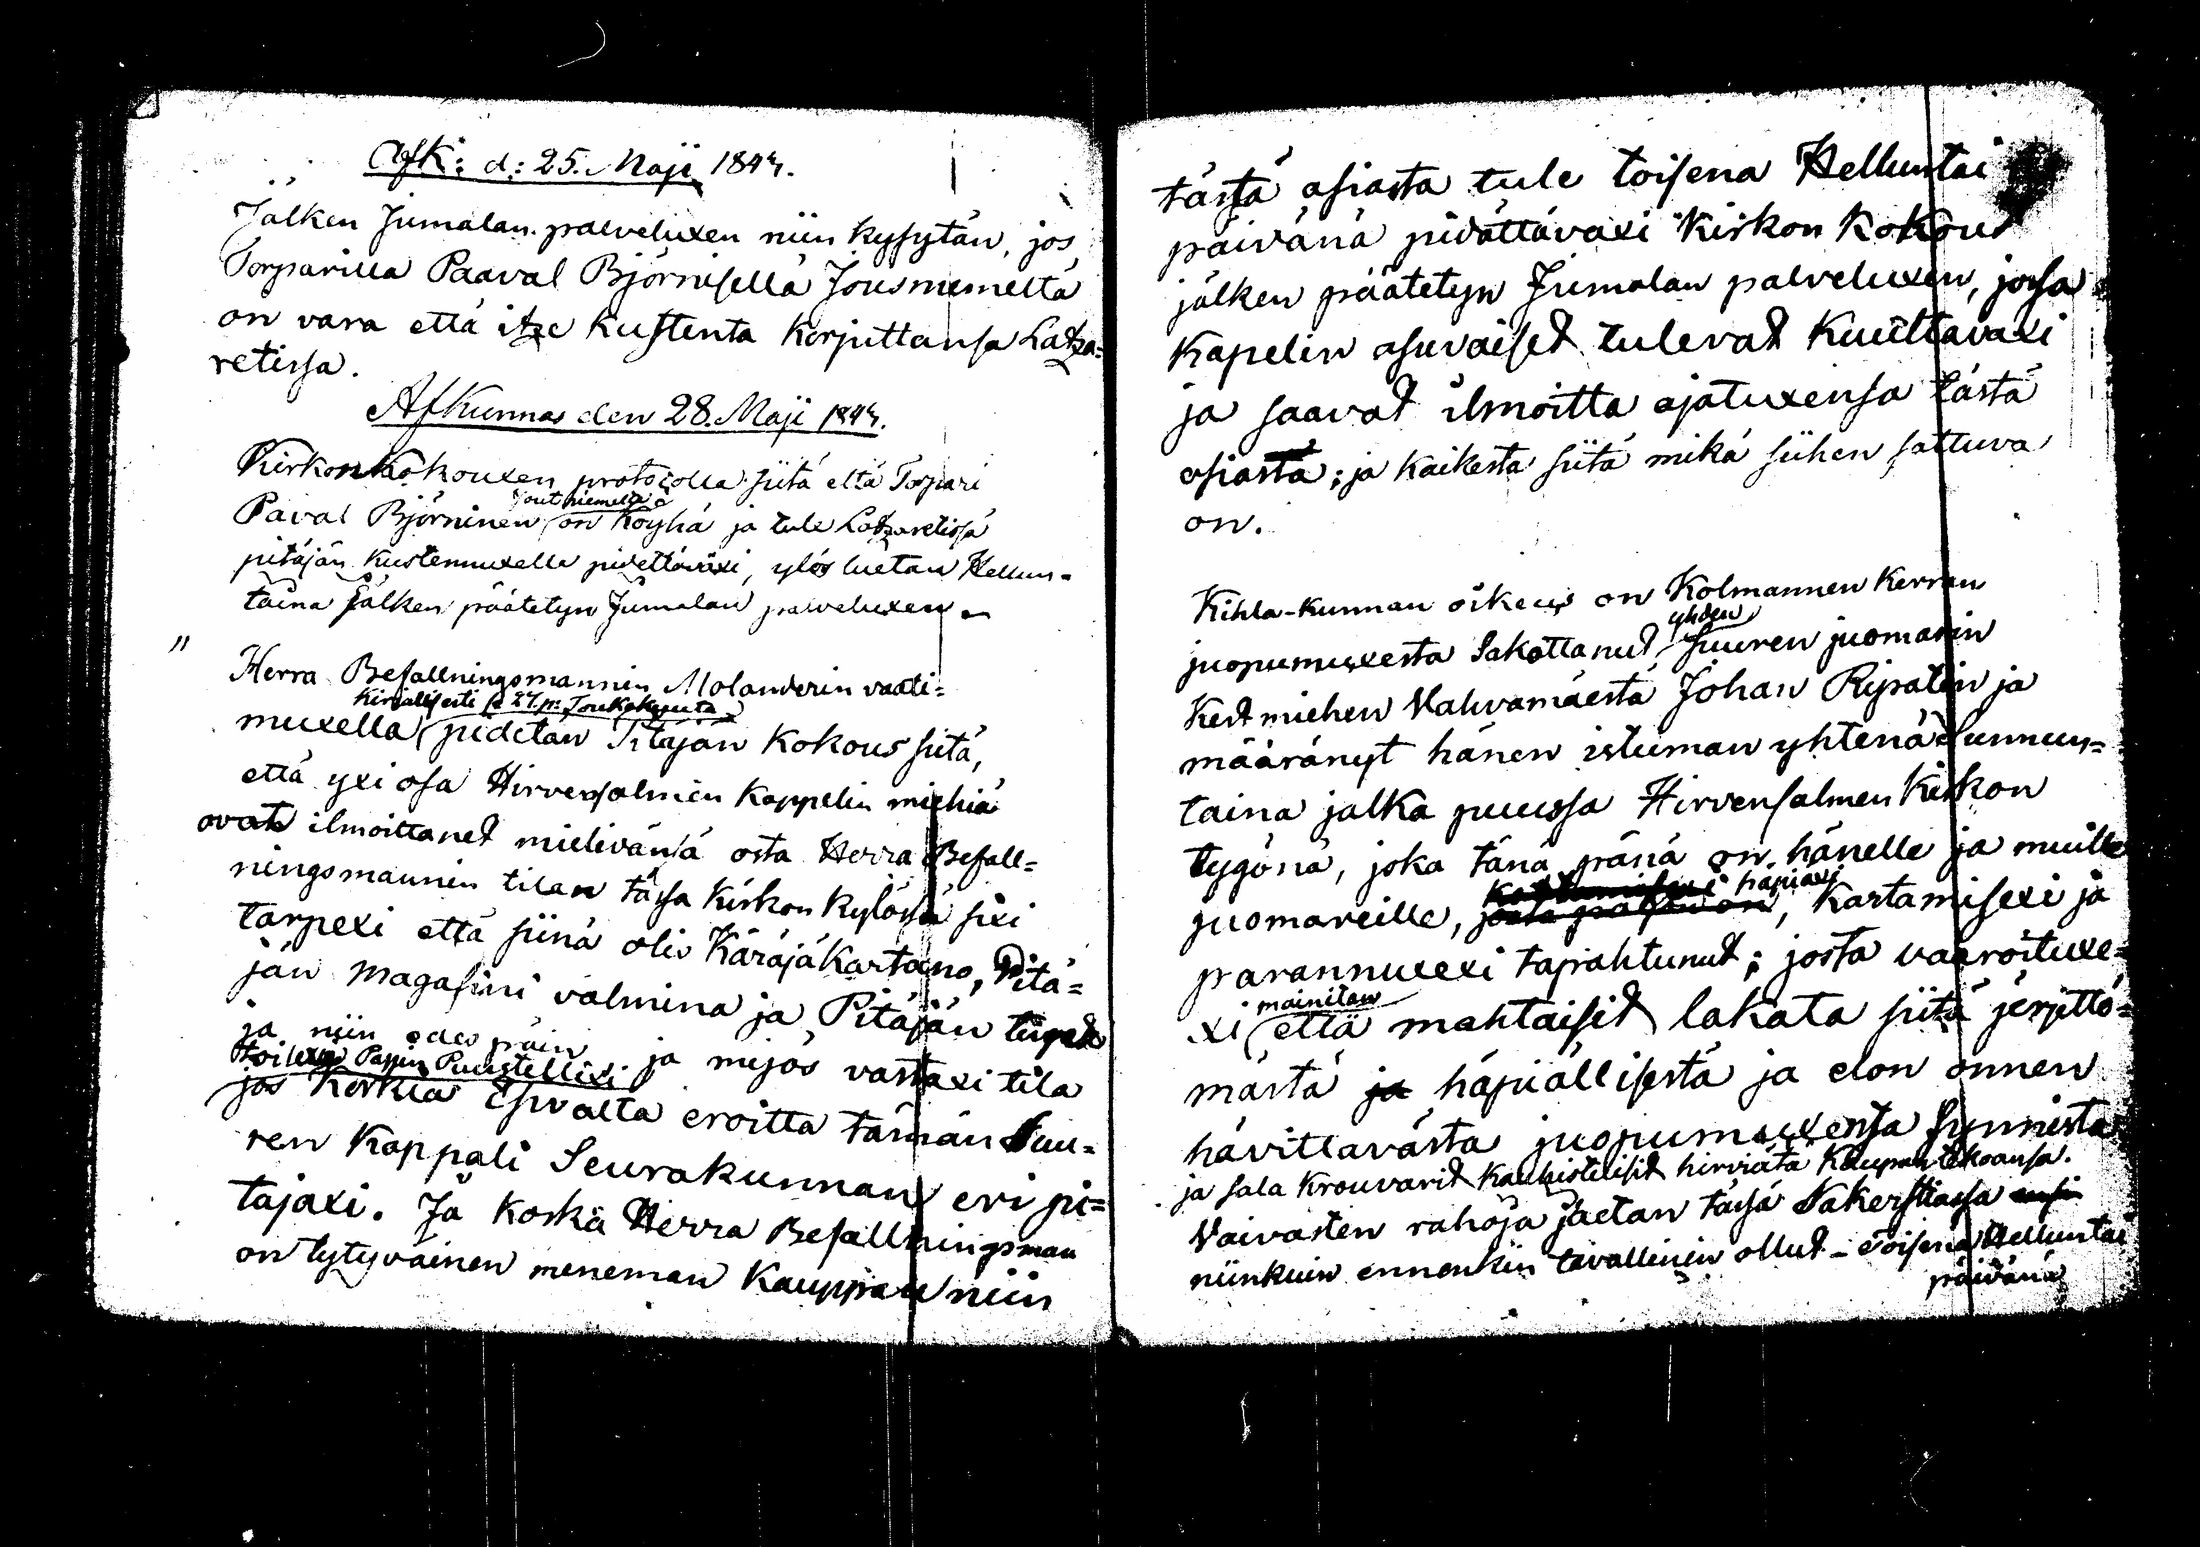 Afk: d: 25. Maji 1844.
Jälken Jumalan palveluxen niin kysytän, jos
Torparilla Paaval Björnisellä Jousniemeltä
on vara että itze kustenta korjuttansa Latza=
retissa.
Afkunnas den 28. Maji 1844.
Kirkon Kokouxen protocolla siitä että Torpari
Joutniemeltä
Paval Björninen on köyhä ja tule Latzaretissä
pitäjän kustennuxella pidettäväxi, ylös luetan Hellun=
taina jälken päätetyn Jumalan palveluxen.
" Herra Befallningsmannin Molanderin vaati=
Kirjallisesti 27 p: Toukokuuta
muxella pidetan Pitäjän Kokous siitä,
että yxi osa Hirvensalmen Kappelin miehiä
ovat ilmoittanet mielivänsä osta Herra Befall=
ningsmannin tilan tässa Kirkon Kylässä sixi
tarpexi että siinä olis Käräjä Kartano, Pitä=
jän Magasini valmina ja Pitäjän tiiget
ja niin edes päin ja mijös vastaxi tila
Papin Puustellixi
jos Korkia Esivalta eroitta tämän Suu=
ren Kappali Seurakunnan eri pi=
täjaxi. Ja koska Herra Befallningsman
on tytyväinen meneman Kauppan niin
tästä asiasta tule toisena Helluntai
päivänä pidättäväxi Kirkon Kokous
jälken päätetyn Jumalan palveluxen, josa
Kapelin asuvaiset tulevat Kuultavaxi
ja saavat ilmoitta ajatuxensa tästä
asiasta; ja kaikesta siitä mikä siihen sattuva
on.
Kihla-kunnan oikeus on Kolmannen Kerran
yhden
juopumuxesta Sakottanut Suuren juomarin
Kestmiehen Vahvamäestä Johan Ripatin ja
määränyt hänen istuman yhtenä Sunnun=
taina jalka puussa Hirvensalmen Kirkon
tygönä, joka tänä pänä on hänelle ja muille
häpiäxi
juomareille, Kartamisexi ja
parannuxexi tapahtunut; josta varoituxe=
mainitan
xi että mahtaisit lakata siitä järjettö=
mästä ja häpiällisestä ja elon onnen
hävittavästä juopumuxensa Synnistä
ja sala Krouvarit kauhistuisit hirviätä Kaupan tekoansa.
Vaivasten rahoja jaetan tässä Sakerstiassa
niinkuin ennenkin tavallinen ollut – toisena Helluntai
päivänä